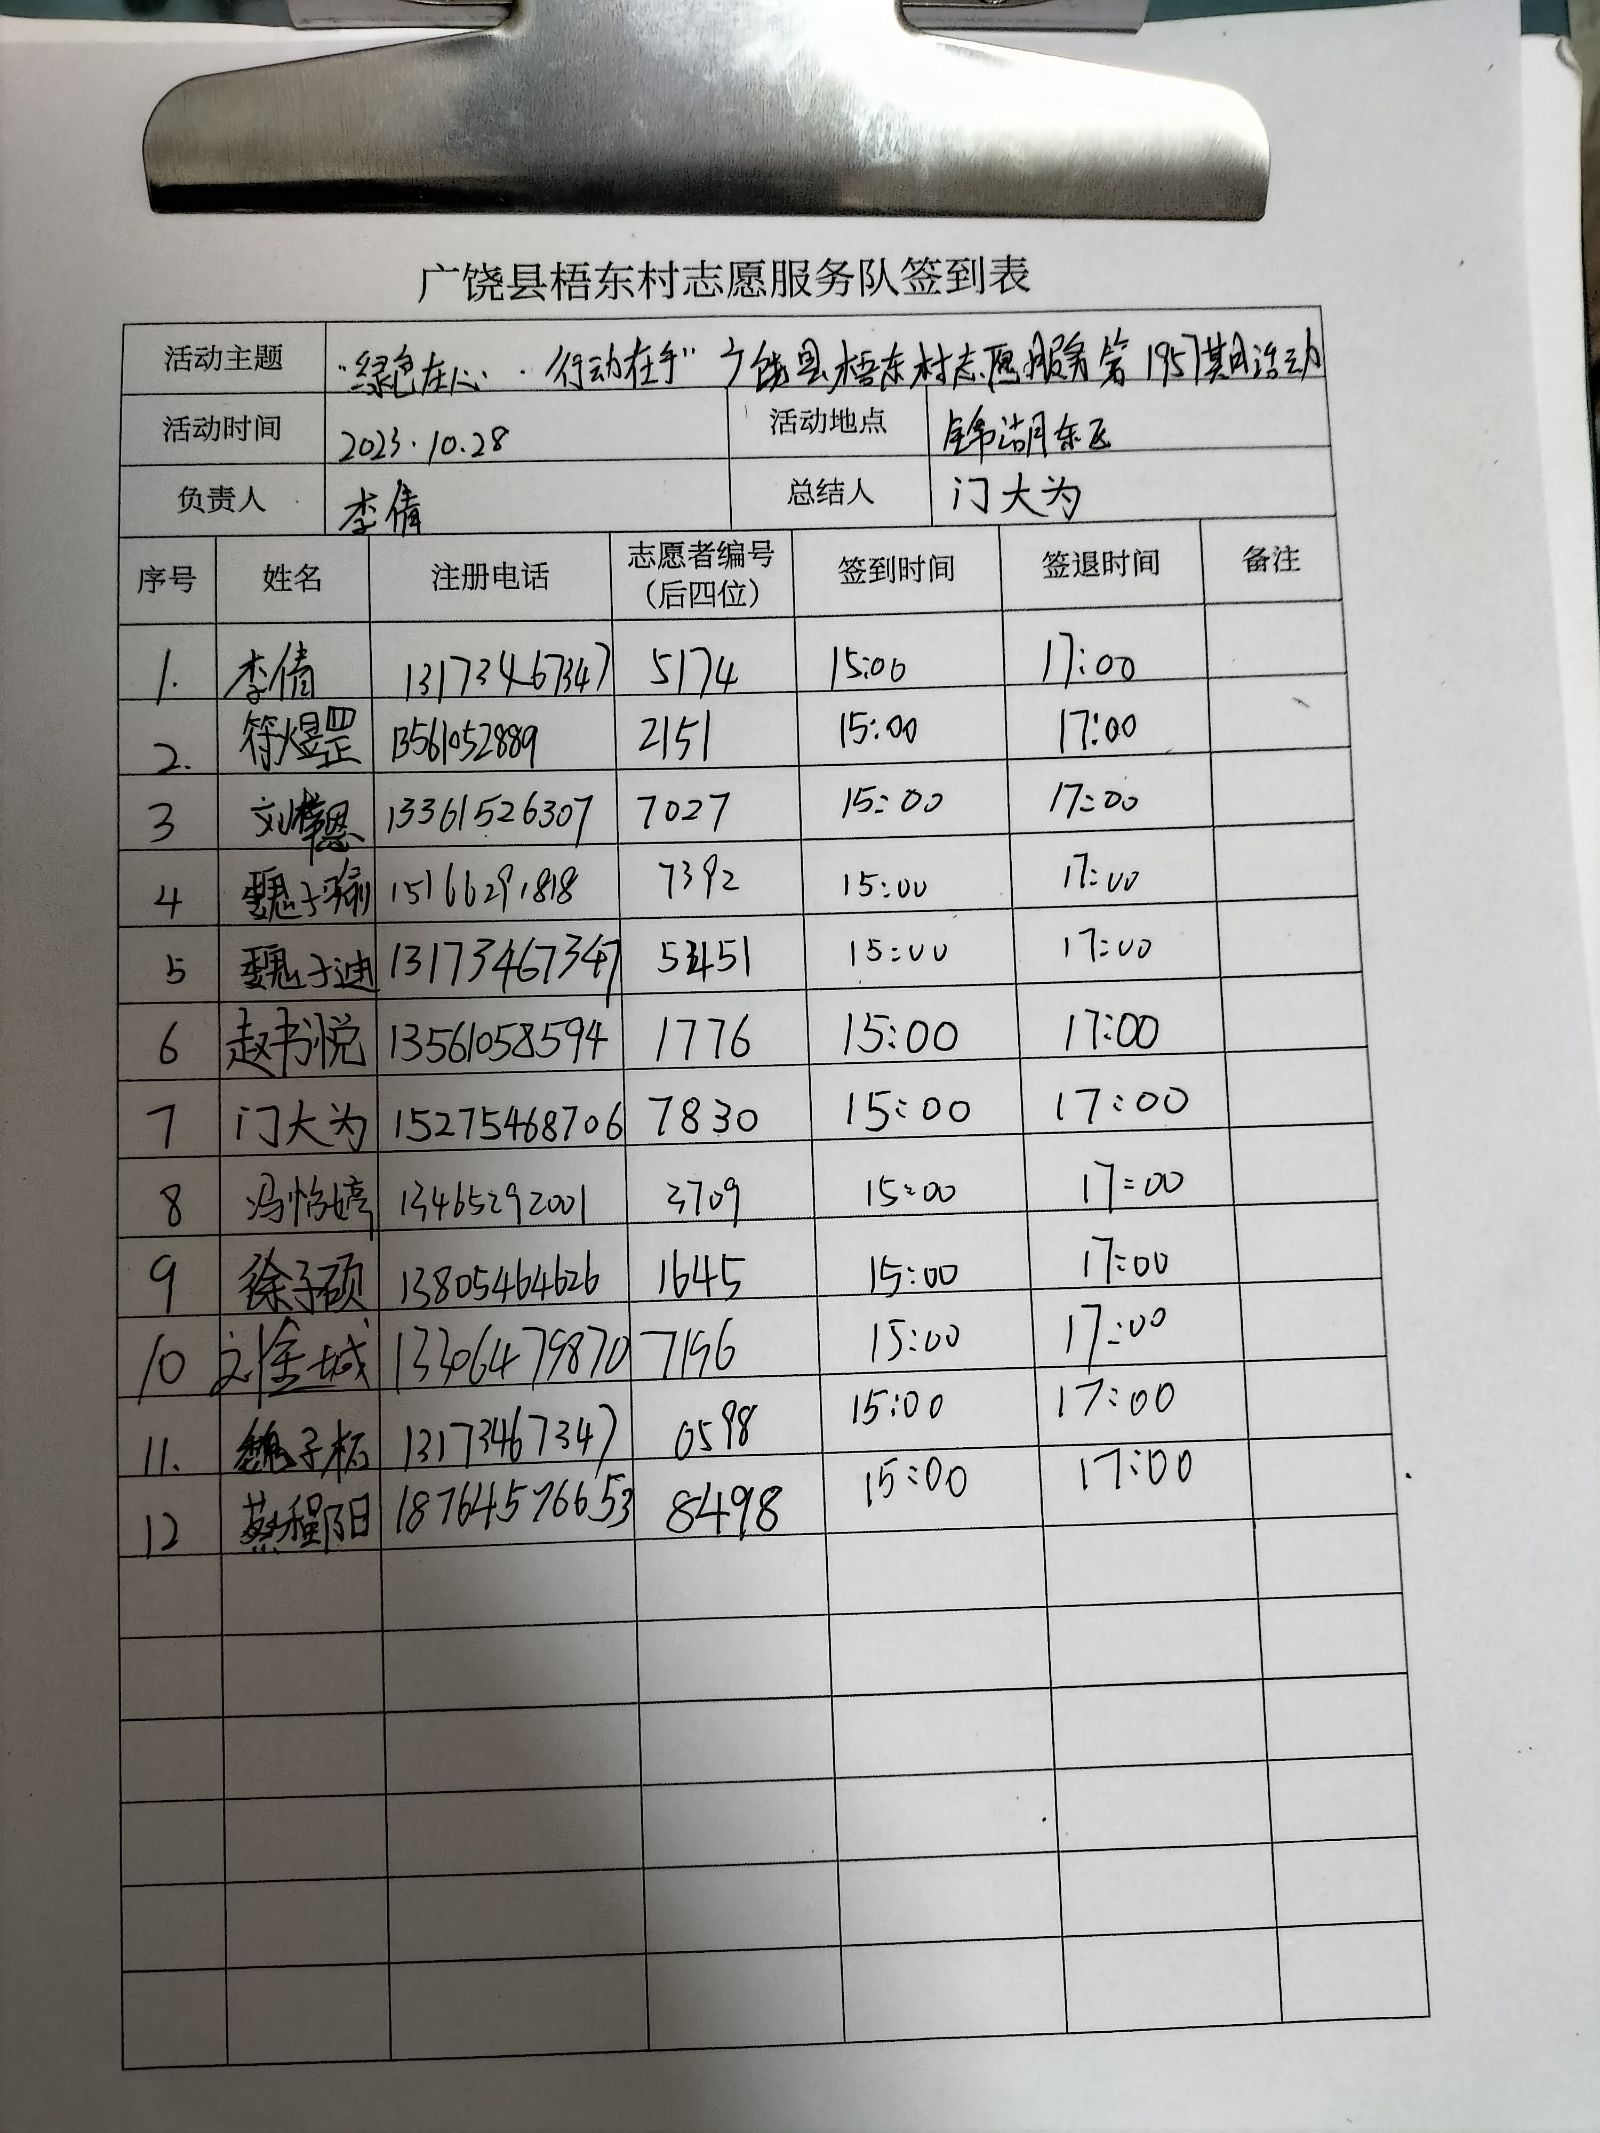 广饶县梧东村志愿服务队签到表
活动主题 "绿色在心··行动在手"广饶县梧东村志愿服务第1957期活动
活动时间 2023.10.28 活动地点 锦湖东区
负责人 李倩 总结人 门大为
序号 姓名 注册电话 志愿者编号（后四位） 签到时间 签退时间 备注
1. 李倩 13173467347 5174 15:00 17:00
2. 符煜罡 13561052889 2151 15:00 17:00
3 刘恩 13361526307 7027 15:00 17:00
4 魏子瑜 15166291818 7392 15:00 17:00
5 魏子迪 13173467347 15:00 17:00
6 赵书悦 13561058594 1776 15:00 17:00
7 门大为 15275468706 7830 15:00 17:00
8 冯怡婷 13465292001 3709 15:00 17:00
9 徐子硕 13805464626 1645 15:00 17:00
10 刘金城 13306479870 7196 15:00 17:00
11. 魏子柘 13173467347 0598 15:00 17:00
12 蔡程阳 18764576653 8498 15:00 17:00